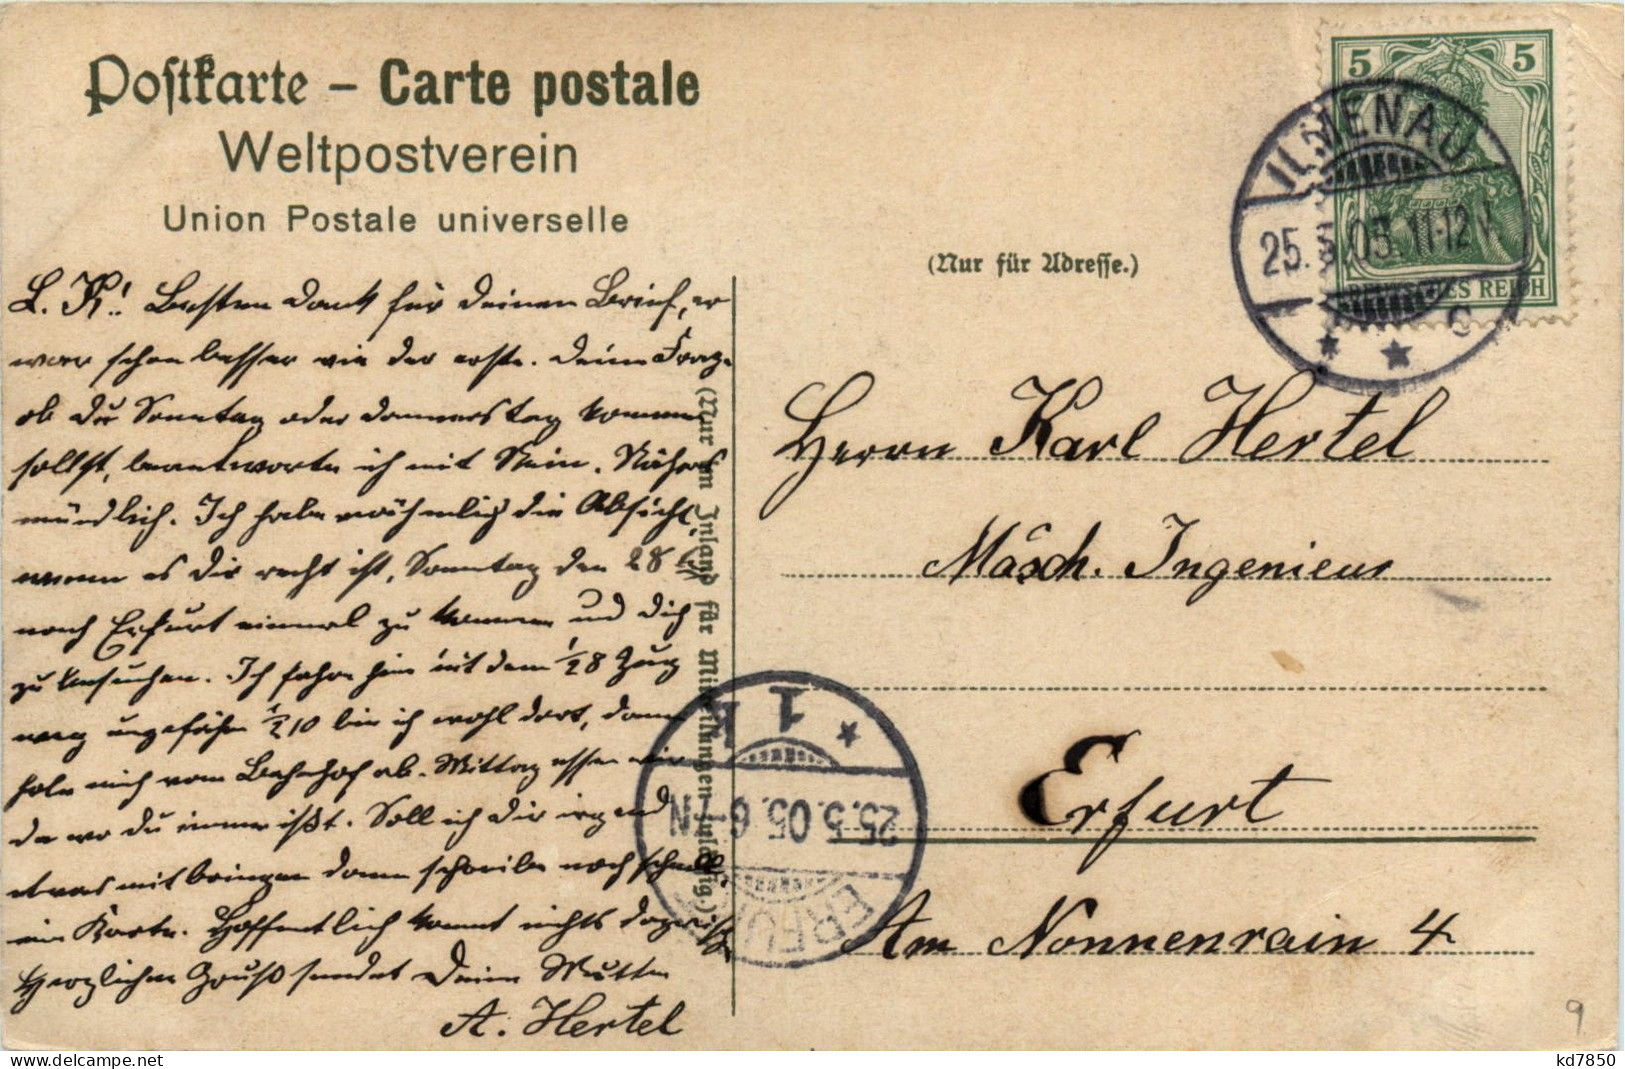 Postkarte – Carte postale
Weltpostverein
Union Postale universelle
(Nur für Adresse.)
5 5
DEUTSCHES REICH
ILMENAU
25.5.05.11-12V.
c
L. K! Besten Dank für deinen Brief, er
war schon besser wie der erste. Deine Frage
ob Du Sonntag oder Donnerstag kommen
sollst, beantworte ich mit Nein. Näheres
mündlich. Ich habe nähmlig die Absicht,
wenn es dir recht ist, Sonntag den 28
nach Erfurt einmal zu kommen und dich
zu besuchen. Ich fahre hier mit dem 1/2 8 Zug
weg ungefähr 1/2 10 bin ich wohl dort, dann
hole mich vom Bahnhof ab. Mittag essen wir
da wo du immer ißt. Soll ich dir irgend
etwas mit bringen dann schreibe noch schnell
ein Karte. Hoffentlich kommt nichts dazwisch.
Herzlichen Gruß sendet Deine Mutter
A. Hertel
(Nur im Inland für Mitteilungen zulässig.)
Herrn Karl Hertel
Masch. Ingenieur
Erfurt
Am Nonnenrain 4
ERFURT
25.5.05.6-7N
1
9
kd7850